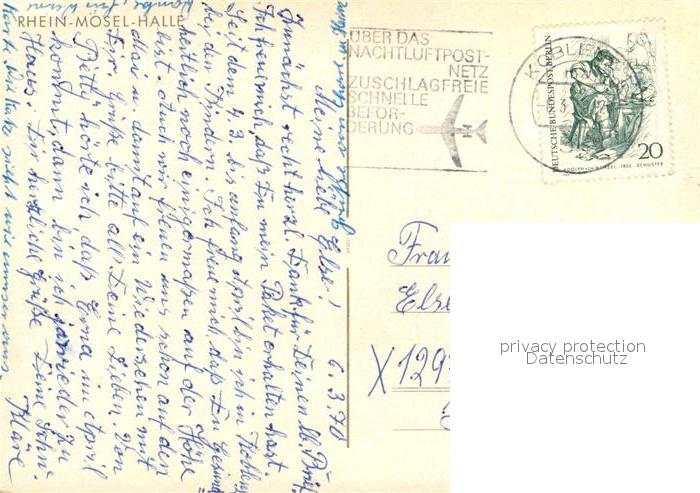 RHEIN-MOSEL-HALLE
ÜBER DAS
NACHTLUFTPOST-
NETZ
ZUSCHLAGFREIE
SCHNELLE
BEFÖR-
DERUNG
KOBLEN
DEUTSCHE BUNDESPOST BERLIN
20
ADOLPH V. MENZEL · 1835 · SCHUSTER
6.3.70
Meine liebe Else!
Zunächst recht herzl. Dank für Deinen lb. Brief
Ich freue mich, daß Du mein Paket erhalten hast.
Seit dem 4.3. bis anfang April bin ich in Koblenz
bei den Kindern. Ich freue mich, daß Du Gesund-
heitlich noch einigermaßen auf der Höhe
bist. Auch wir freuen uns schon auf den
Mai u. damit auf ein Wiedersehen mit
Dir. Grüße bitte all Deine Lieben. Von
Betty hörte ich, daß Erna im April
kommt, dann bin ich ja wieder zu
Haus. Dir herzliche Grüße Deine Schw.
Kläre
Frau
Else
X 129
privacy protection
Datenschutz